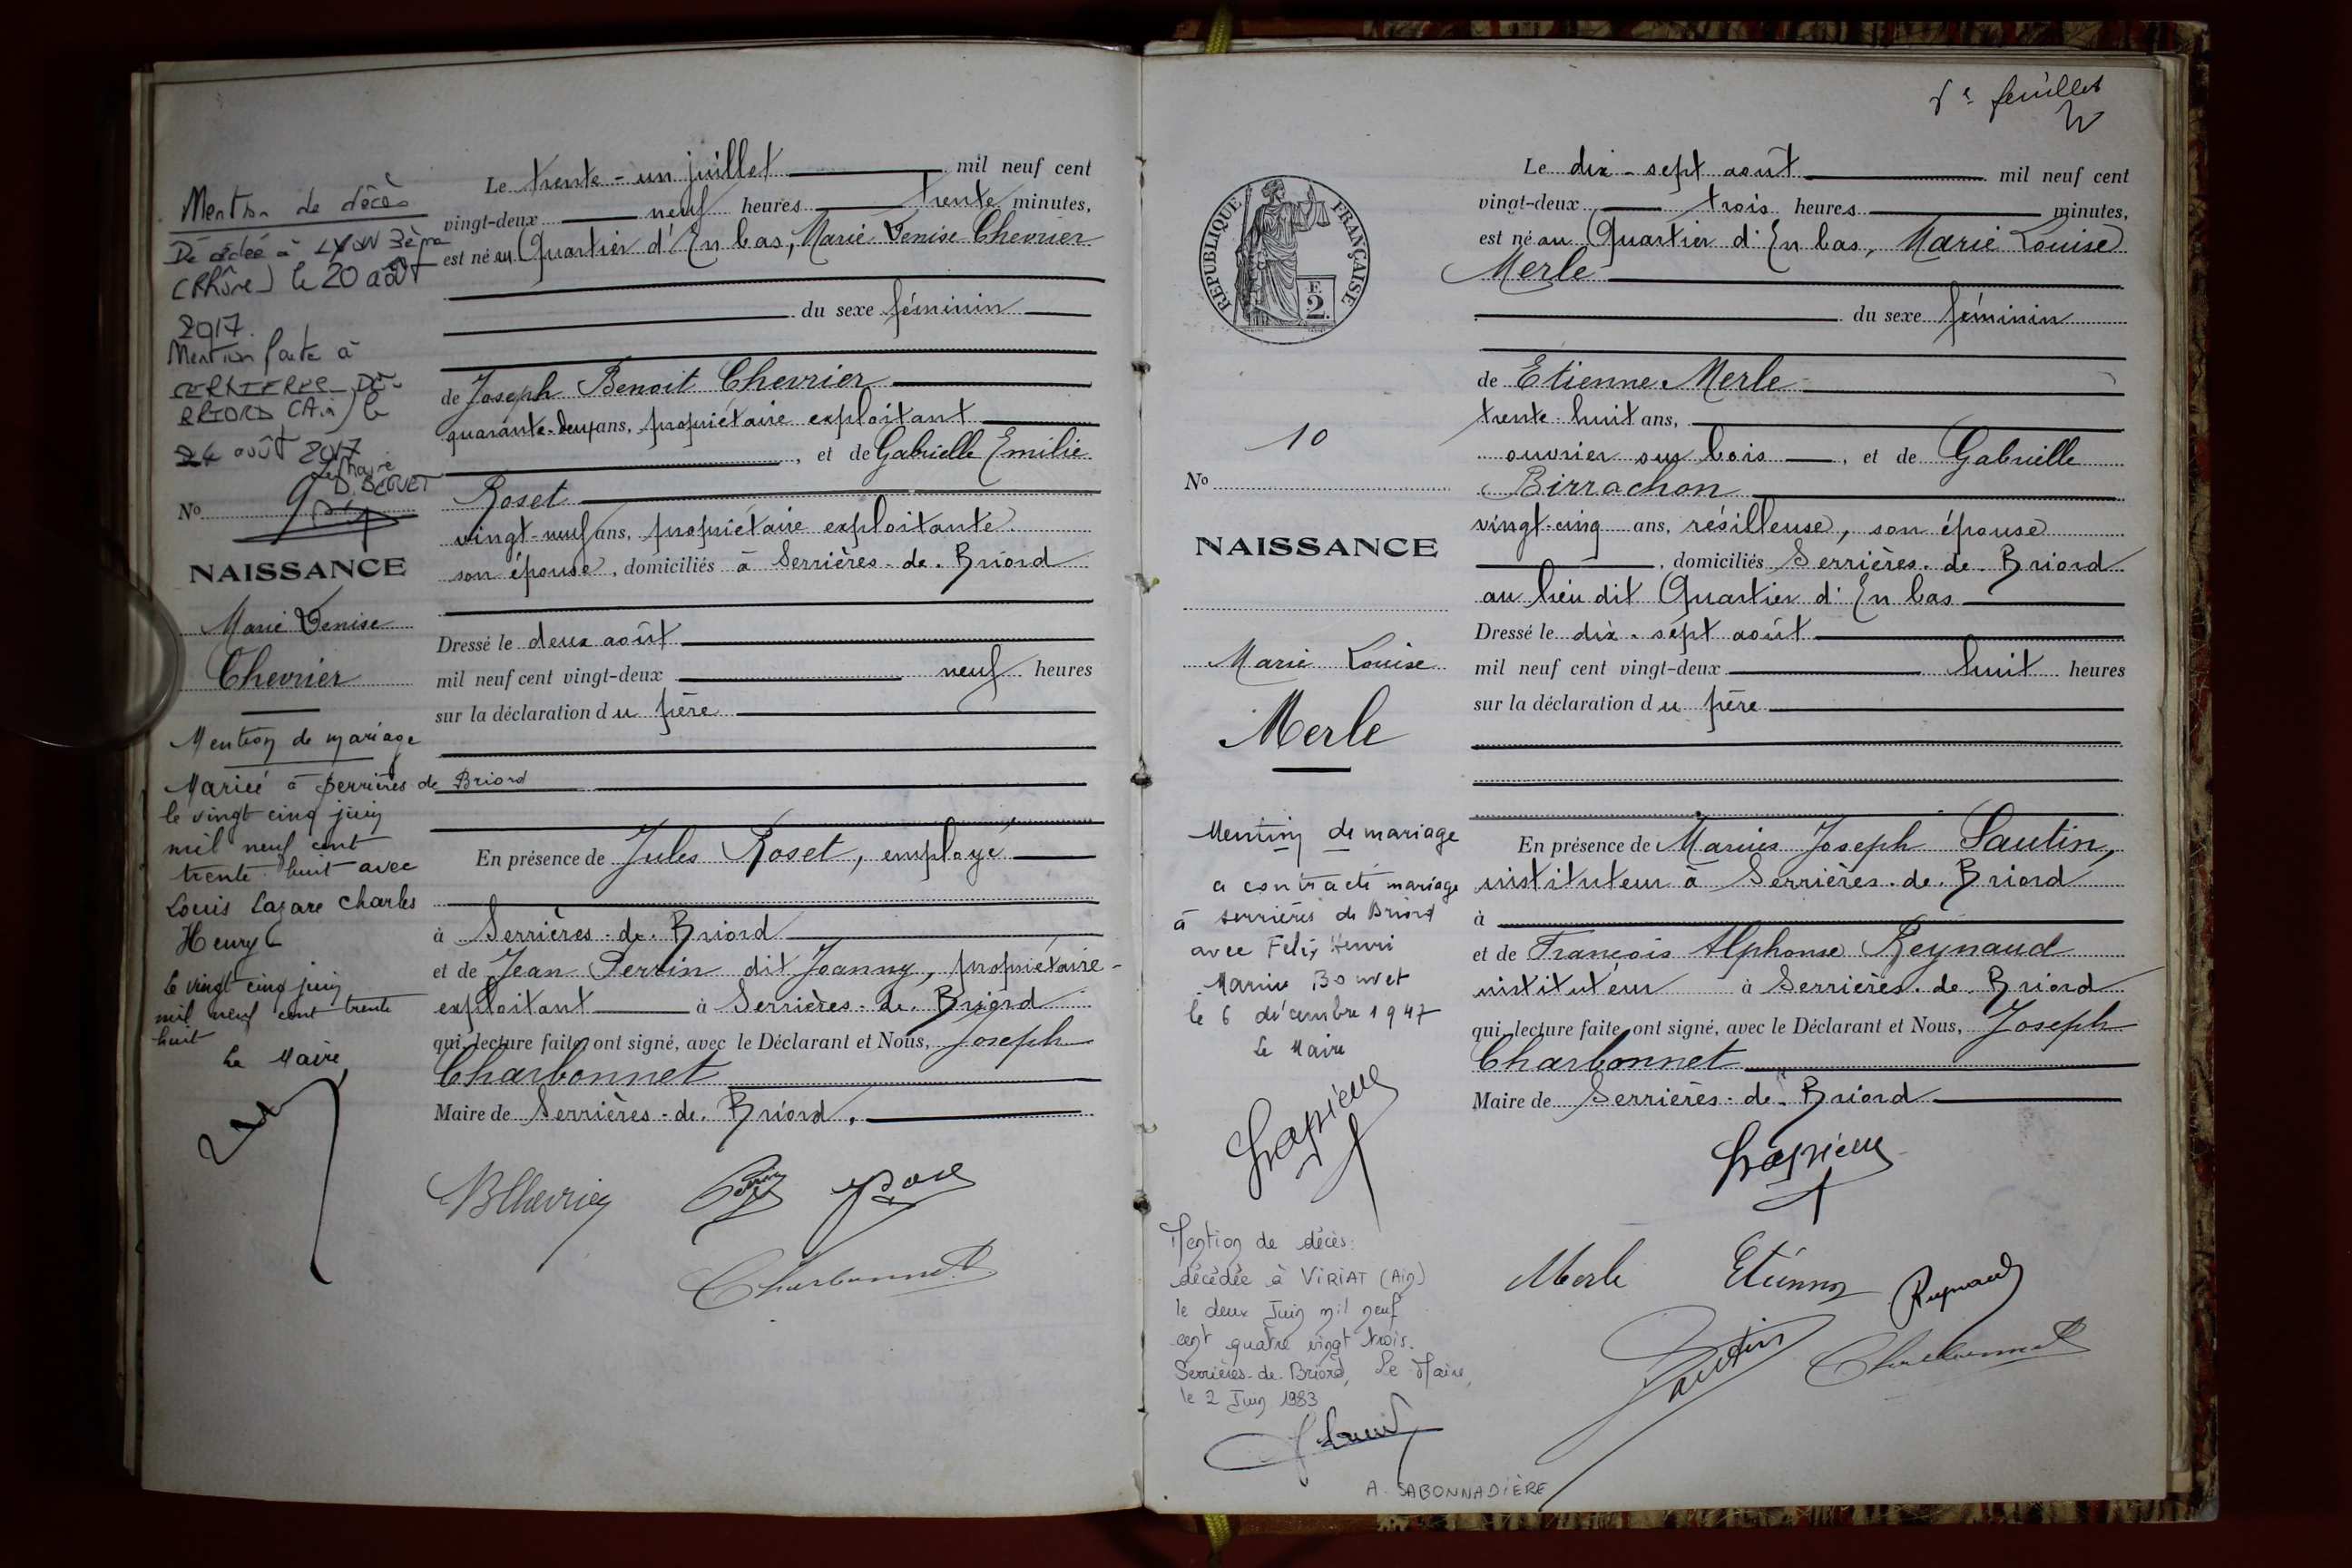 Mention de décès
Décédée à LYON 3ème
(Rhône) le 20 août
2017.
Mention faite à
SERRIERES DE
BRIORD (Ain) le
24 août 2017
Le Maire
D. BEGUET
No 9
NAISSANCE
Marie Denise
Chevrier
Mention de mariage
Mariée à Serrières de Briord
le vingt cinq juin
mil neuf cent
trente huit avec
Louis Lazare Charles
Henry
le vingt cinq juin
mil neuf cent trente
huit
Le Maire,
Le trente-un juillet mil neuf cent
vingt-deux neuf heures trente minutes,
est né au Quartier d'En bas, Marie Denise Chevrier
du sexe féminin
de Joseph Benoit Chevrier
quarante-deux ans, propriétaire exploitant
, et de Gabrielle Emilie
Roset
vingt-neuf ans, propriétaire exploitante
son épouse, domiciliés à Serrières-de-Briord
Dressé le deux août
mil neuf cent vingt-deux neuf heures
sur la déclaration du père
En présence de Jules Roset, employé
à Serrières-de-Briord
et de Jean Perrin dit Joanny, propriétaire-
exploitant à Serrières-de-Briord
qui, lecture faite, ont signé, avec le Déclarant et Nous, Joseph
Charbonnet
Maire de Serrières-de-Briord.
BChevrier Perrin
Charbonnet
feuillet
RÉPUBLIQUE FRANÇAISE
F.
2.
10
No
NAISSANCE
Marie Louise
Merle
Mention de mariage
a contracté mariage
à Serrières de Briord
avec Felix Henri
Marius Bouvet
le 6 décembre 1947
Le Maire
Mention de décès:
décédée à VIRIAT (Ain)
le deux Juin mil neuf
cent quatre vingt trois.
Serrières-de-Briord, Le Maire,
le 2 Juin 1983
A. SABONNADIÈRE
Le dix-sept août mil neuf cent
vingt-deux trois heures minutes,
est né au Quartier d'En bas, Marie Louise
Merle
du sexe féminin
de Etienne Merle
trente-huit ans,
ouvrier sur bois, et de Gabrielle
Birrachon
vingt-cinq ans, résilleuse, son épouse
, domiciliés Serrières-de-Briord
au lieu dit Quartier d'En bas
Dressé le dix-sept août
mil neuf cent vingt-deux huit heures
sur la déclaration du père
En présence de Marius Joseph Sautin,
instituteur à Serrières-de-Briord
à
et de François Alphonse Reynaud
instituteur à Serrières-de-Briord
qui, lecture faite, ont signé, avec le Déclarant et Nous, Joseph
Charbonnet
Maire de Serrières-de-Briord
Merle Etienne Reynaud
Sautin Charbonnet